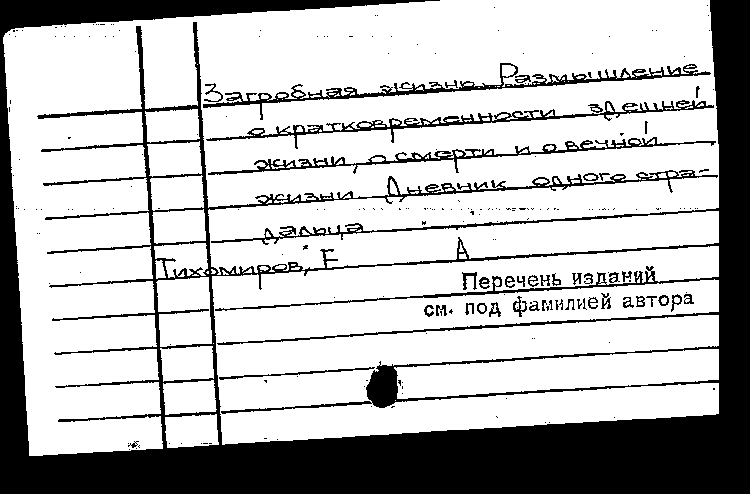 Загробная жизнь. Размышление
о кратковременности здешней
жизни, о смерти и о вечной
жизни. Дневник одного стра-
дальца
Тихомиров, Е А
Перечень изданий
см. под фамилией автора